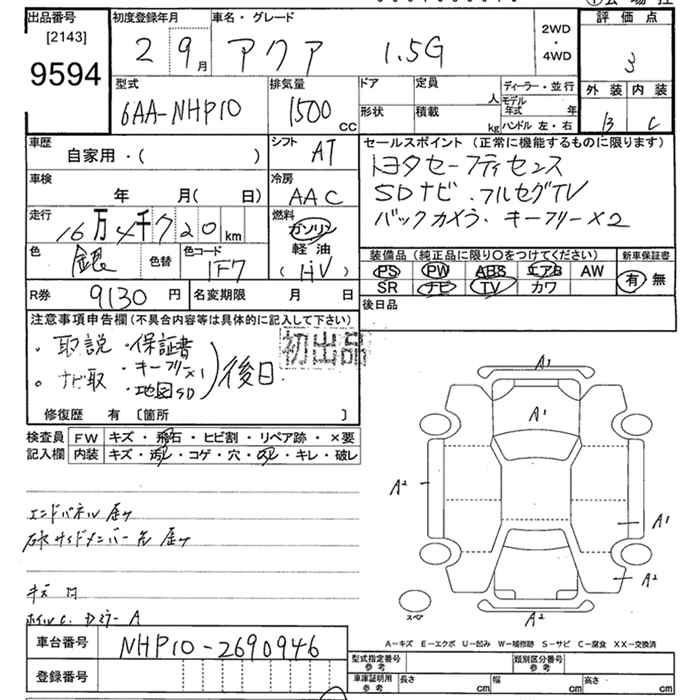 出品番号 初度登録年月 車名・グレード 2WD・4WD 評価点
[2143]
9594
2 9月 アクア 1.5G
3
型式 排気量 ドア 定員 人 ディーラー・並行 外装 内装
6AA-NHP10 1500cc 形状 積載 kg モデル年式 年 ハンドル 左・右 B C
車歴 シフト セールスポイント (正常に機能するものに限ります)
自家用・( ) AT
トヨタセーフティセンス
車検 冷房
年 月( 日) AAC
SDナビ.フルセグTV
走行 燃料
16万4千720km ガソリン
バックカメラ.キーフリー×2
軽油
色 色替 色コード 装備品 (純正品に限り○をつけてください) 新車保証書
銀 1F7 (HV)
PS PW ABS エアB AW 有 無
SR ナビ TV カワ
R券 9130円 名変期限 月 日
後日品
注意事項申告欄 (不具合内容等は具体的に記入して下さい)
初出品
・取説・保証書
・キーフリー×1
・ナビ取・地図SD
後日.
修復歴 有 [箇所 ]
検査員 FW キズ・飛石・ヒビ割・リペア跡・×要
記入欄 内装 キズ・汚レ・コゲ・穴・スレ・キレ・破レ
A1
A1
A2
A1
A2
A2
スペア
エンドパネル
キズ
A
A-キズ E-エクボ U-凹み W-補修跡 S-サビ C-腐食 XX-交換済
車台番号 NHP10-2690946
登録番号
型式指定番号 参考 類別区分番号 参考
車庫証明用 参考 長さ cm 幅 cm 高さ cm